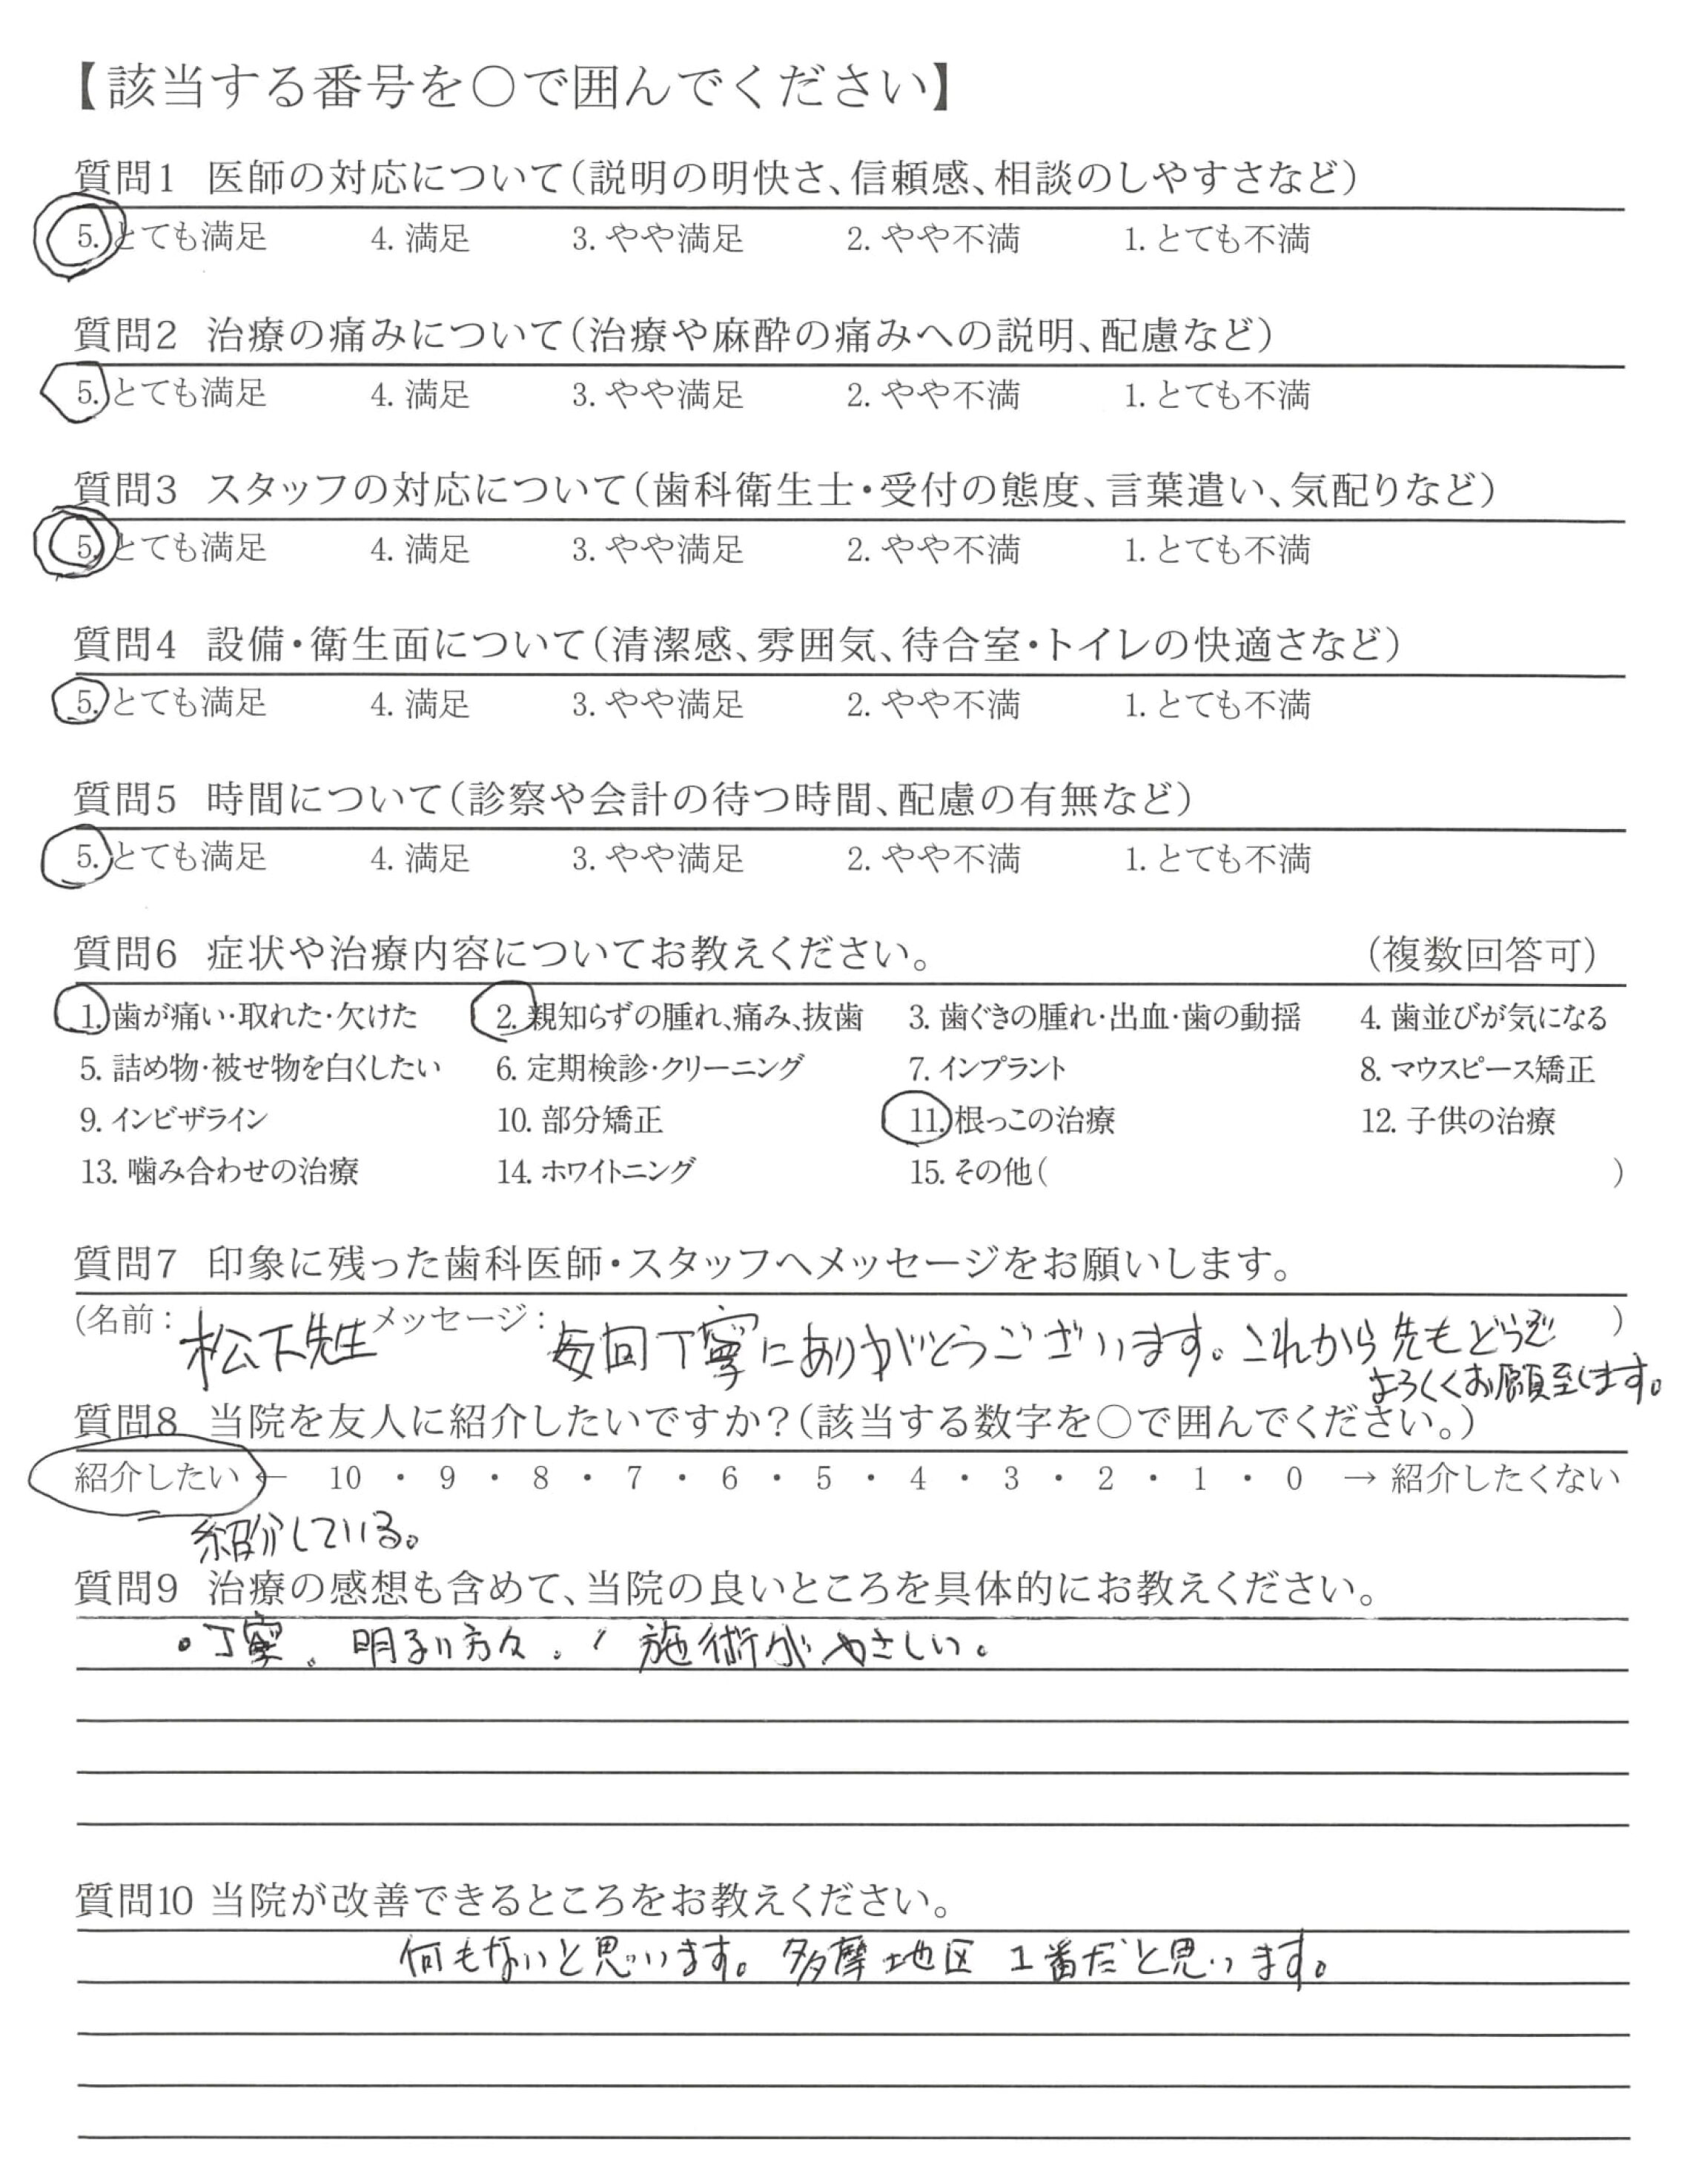 【該当する番号を○で囲んでください】
質問1 医師の対応について(説明の明快さ、信頼感、相談のしやすさなど)
5. とても満足 4. 満足 3. やや満足 2. やや不満 1. とても不満
質問2 治療の痛みについて(治療や麻酔の痛みへの説明、配慮など)
5. とても満足 4. 満足 3. やや満足 2. やや不満 1. とても不満
質問3 スタッフの対応について(歯科衛生士・受付の態度、言葉遣い、気配りなど)
5. とても満足 4. 満足 3. やや満足 2. やや不満 1. とても不満
質問4 設備・衛生面について(清潔感、雰囲気、待合室・トイレの快適さなど)
5. とても満足 4. 満足 3. やや満足 2. やや不満 1. とても不満
質問5 時間について(診察や会計の待つ時間、配慮の有無など)
5. とても満足 4. 満足 3. やや満足 2. やや不満 1. とても不満
質問6 症状や治療内容についてお教えください。 (複数回答可)
1. 歯が痛い・取れた・欠けた 2. 親知らずの腫れ、痛み、抜歯 3. 歯ぐきの腫れ・出血・歯の動揺 4. 歯並びが気になる
5. 詰め物・被せ物を白くしたい 6. 定期検診・クリーニング 7. インプラント 8. マウスピース矯正
9. インビザライン 10. 部分矯正 11. 根っこの治療 12. 子供の治療
13. 噛み合わせの治療 14. ホワイトニング 15. その他( )
質問7 印象に残った歯科医師・スタッフへメッセージをお願いします。
(名前: 松下先生 メッセージ: 毎回丁寧にありがとうございます。これから先もどうぞ )
よろしくお願い致します。
質問8 当院を友人に紹介したいですか?(該当する数字を○で囲んでください。)
紹介したい ← 10 ・ 9 ・ 8 ・ 7 ・ 6 ・ 5 ・ 4 ・ 3 ・ 2 ・ 1 ・ 0 → 紹介したくない
紹介している。
質問9 治療の感想も含めて、当院の良いところを具体的にお教えください。
・丁寧、明るい方々、施術がやさしい。
質問10 当院が改善できるところをお教えください。
何もないと思います。多摩地区1番だと思います。